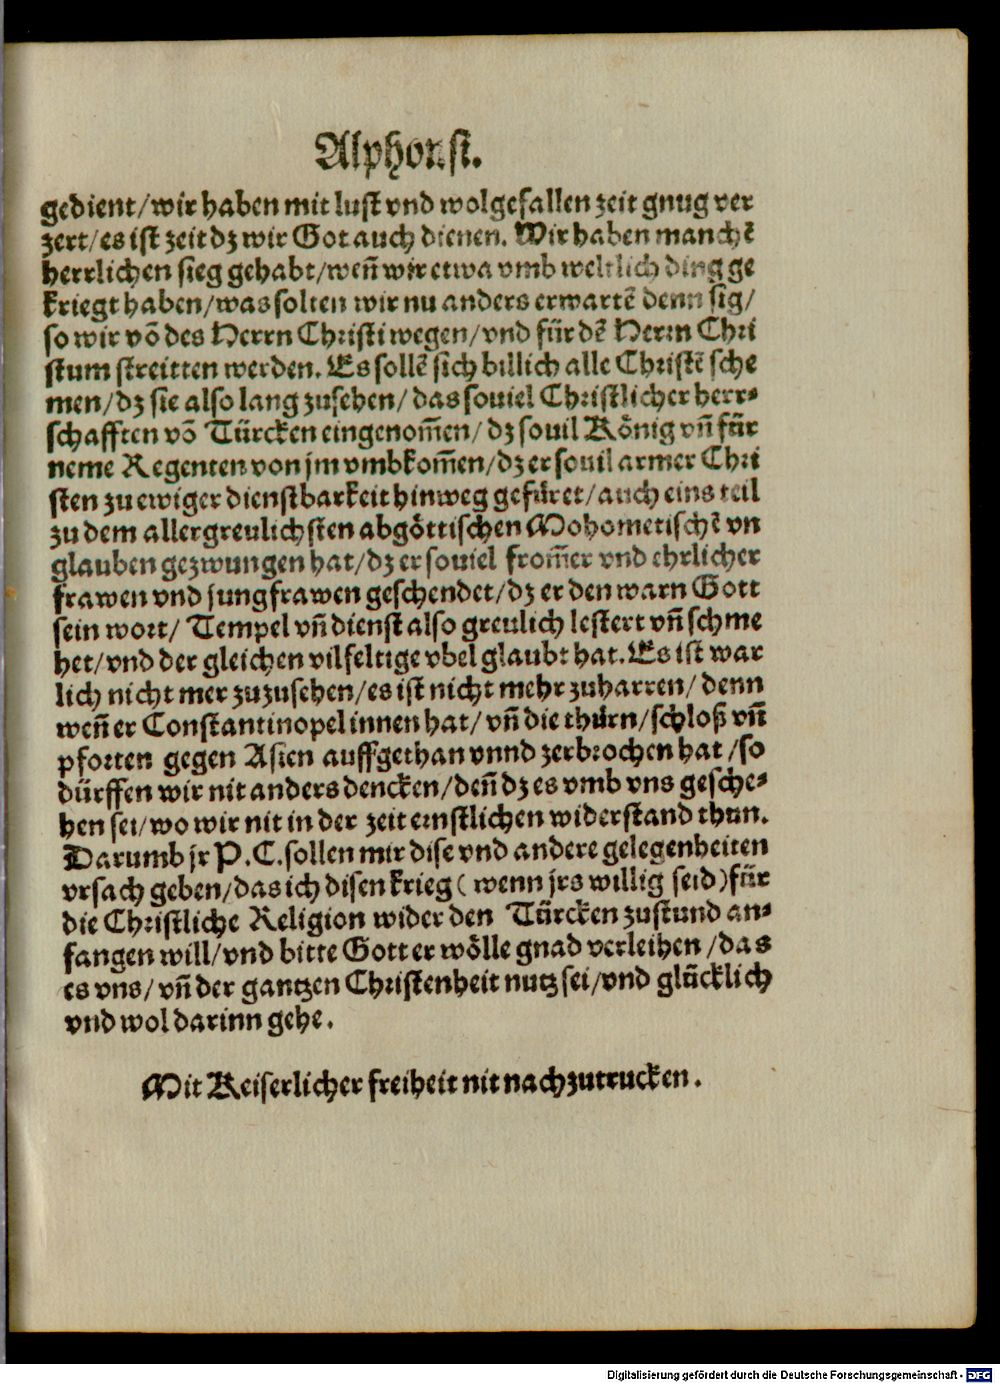 Alphonsi.
gedient/wir haben mit lust vnd wolgefallen zeit gnug ver
zert/es ist zeit dz wir Got auch dienen. Wir haben manchẽ
herrlichen sieg gehabt/weñ wir etwa vmb weltlich ding ge
kriegt haben/was solten wir nu anders erwartẽ denn sig/
so wir võ des Herrn Christi wegen/vnd für dẽ Herrn Chri
stum streitten werden. Es sollẽ sich billich alle Christẽ sche
men/dz sie also lang zusehen/das souiel Christlicher herr⸗
schafften võ Türcken eingenom̃en/dz souil König vñ für
neme Regenten von jm vmbkom̃en/dz er souil armer Chri
sten zu ewiger dienstbarkeit hinweg gefüret/auch eins teil
zu dem allergreulichsten abgöttischen Mohometischẽ vn
glauben gezwungen hat/dz er souiel from̃er vnd ehrlicher
frawen vnd jungfrawen geschendet/dz er den warn Gott
sein wort/Tempel vñ dienst also greulich lestert vñ schme
het/vnd der gleichen vilfeltige vbel glaubt hat. Es ist war
lich nicht mer zuzusehen/es ist nicht mehr zuharren/denn
weñ er Constantinopel innen hat/vñ die thürn/schloß vñ
pforten gegen Asien auffgethan vnnd zerbrochen hat/so
dürffen wir nit anders dencken/deñ dz es vmb vns gesche⸗
hen sei/wo wir nit in der zeit ernstlichen widerstand thun.
Darumb jr P.C. sollen mir dise vnd andere gelegenheiten
vrsach geben/das ich disen krieg (wenn jrs willig seid) für
die Christliche Religion wider den Türcken zustund an⸗
fangen will/vnd bitte Gott er wölle gnad verleihen/das
es vns/vñ der gantzen Christenheit nutz sei/vnd glücklich
vnd wol darinn gehe.
Mit Keiserlicher freiheit nit nachzutrucken.
Digitalisierung gefördert durch die Deutsche Forschungsgemeinschaft - DFG